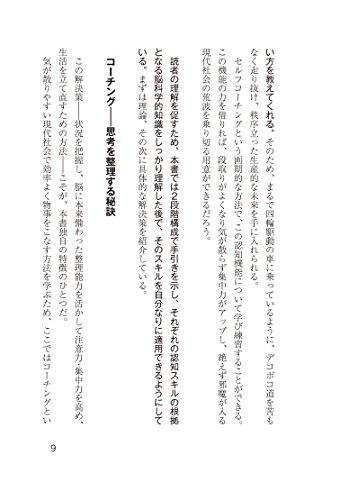 い方を教えてくれる。そのため、まるで四輪駆動の車に乗っているように、デコボコ道を苦も
なく走り抜け、秩序立った生産的な未来を手に入れられる。
セルフコーチングという画期的な方法で、この認知機能について学び練習することができる。
この機能の力を借りれば、段取りがよくなり気が散らず集中力がアップし、絶えず邪魔が入る
現代社会の荒波を乗り切る用意ができるだろう。
読者の理解を促すため、本書では2段階構成で手引きを示し、それぞれの認知スキルの根拠
となる脳科学的知識をしっかり理解した後で、そのスキルを自分なりに適用できるようにして
いる。まずは理論、その次に具体的な解決策を紹介している。
コーチング――思考を整理する秘訣
この解決策――状況を把握し、脳に本来備わった整理能力を活かして注意力・集中力を高め、
生活を立て直すための方法――こそが、本書独自の特徴のひとつだ。
気が散りやすい現代社会で効率よく物事をこなす方法を学ぶため、ここではコーチングとい
9